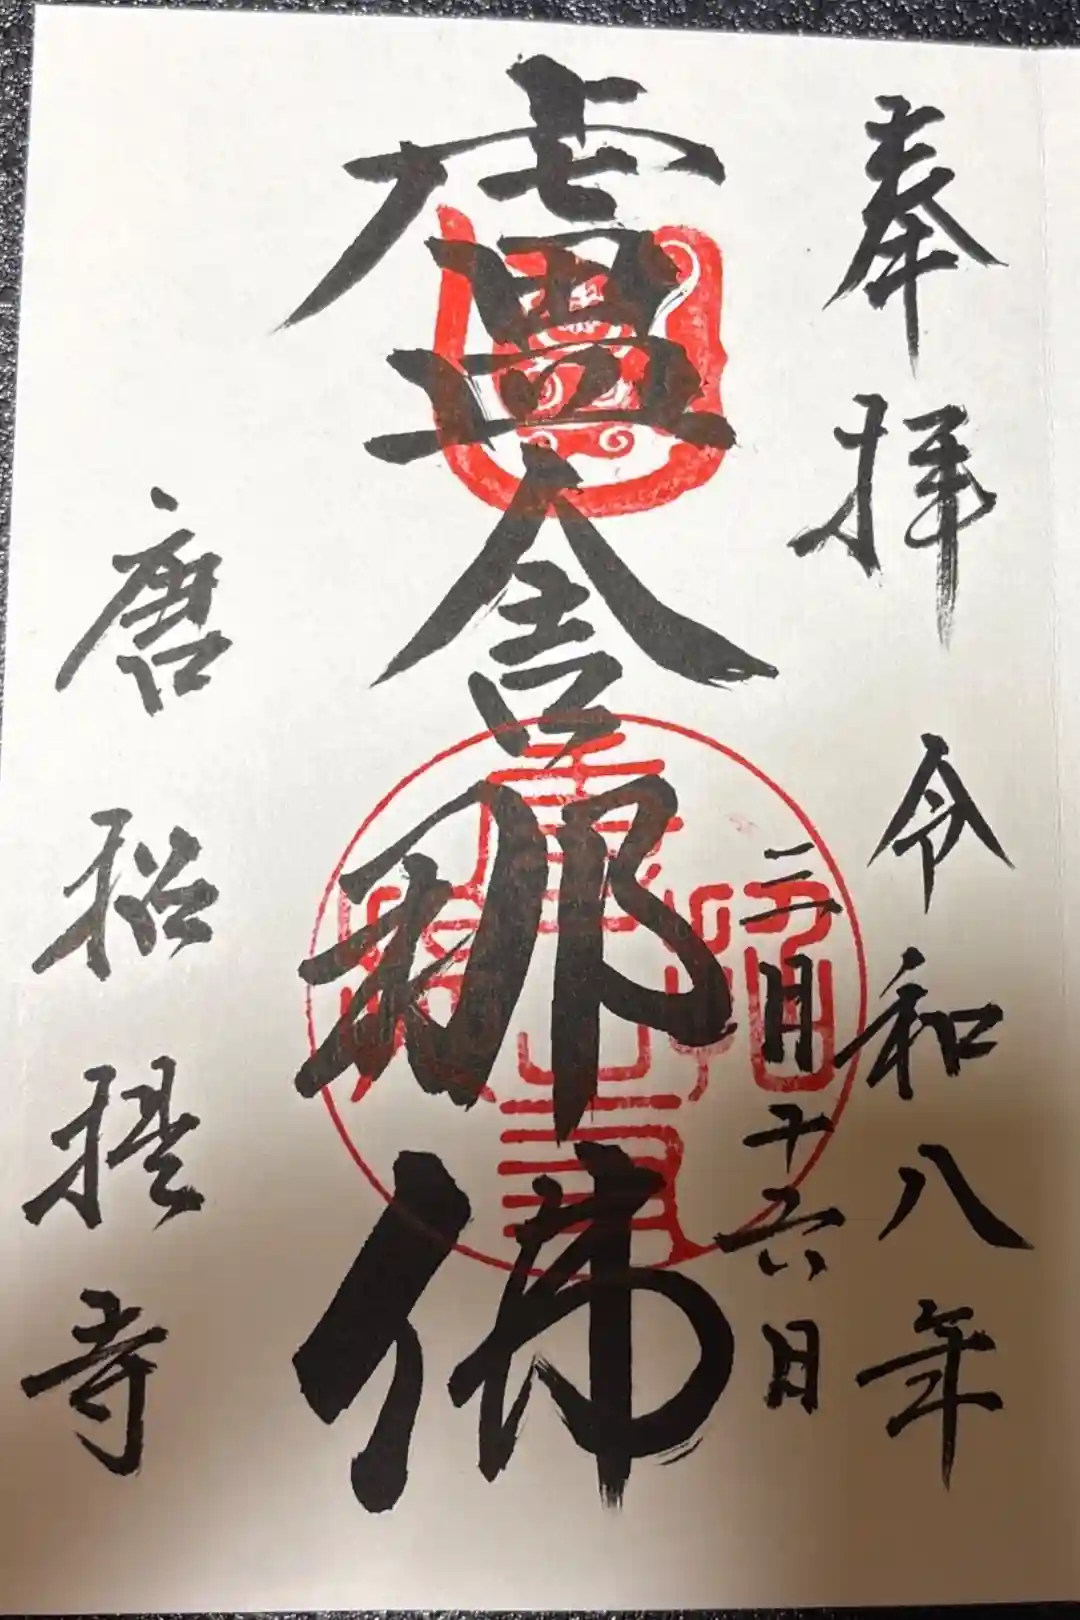 奉拝
令和八年
二月十六日
盧舎那佛
唐招提寺